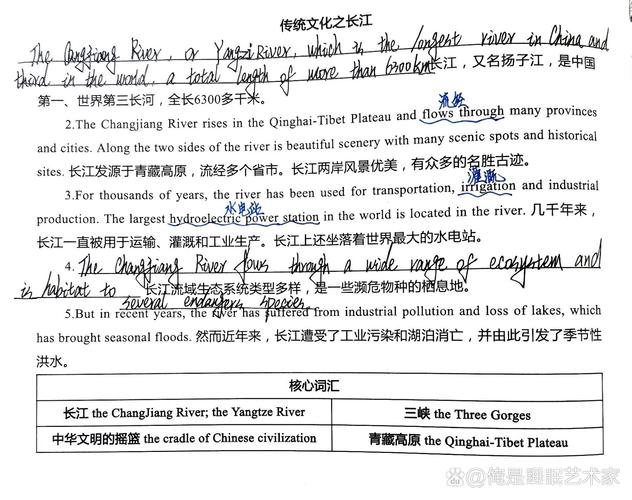 传统文化之长江
The Changjiang River, or Yangzi River, which is the longest river in China and
third in the world, a total length of more than 6300km 长江，又名扬子江，是中国
第一、世界第三长河，全长6300多千米。
流经
2.The Changjiang River rises in the Qinghai-Tibet Plateau and flows through many provinces
and cities. Along the two sides of the river is beautiful scenery with many scenic spots and historical
sites. 长江发源于青藏高原，流经多个省市。长江两岸风景优美，有众多的名胜古迹。
灌溉
3.For thousands of years, the river has been used for transportation, irrigation and industrial
水电站
production. The largest hydroelectric power station in the world is located in the river. 几千年来，
长江一直被用于运输、灌溉和工业生产。长江上还坐落着世界最大的水电站。
4. The Changjiang River flows through a wide range of ecosystem and
is habitat to 长江流域生态系统类型多样，是一些濒危物种的栖息地。
several endangers species
5.But in recent years, the river has suffered from industrial pollution and loss of lakes, which
has brought seasonal floods. 然而近年来，长江遭受了工业污染和湖泊消亡，并由此引发了季节性
洪水。
核心词汇
长江 the ChangJiang River; the Yangtze River 三峡 the Three Gorges
中华文明的摇篮 the cradle of Chinese civilization 青藏高原 the Qinghai-Tibet Plateau
@俺是睡眠艺术家